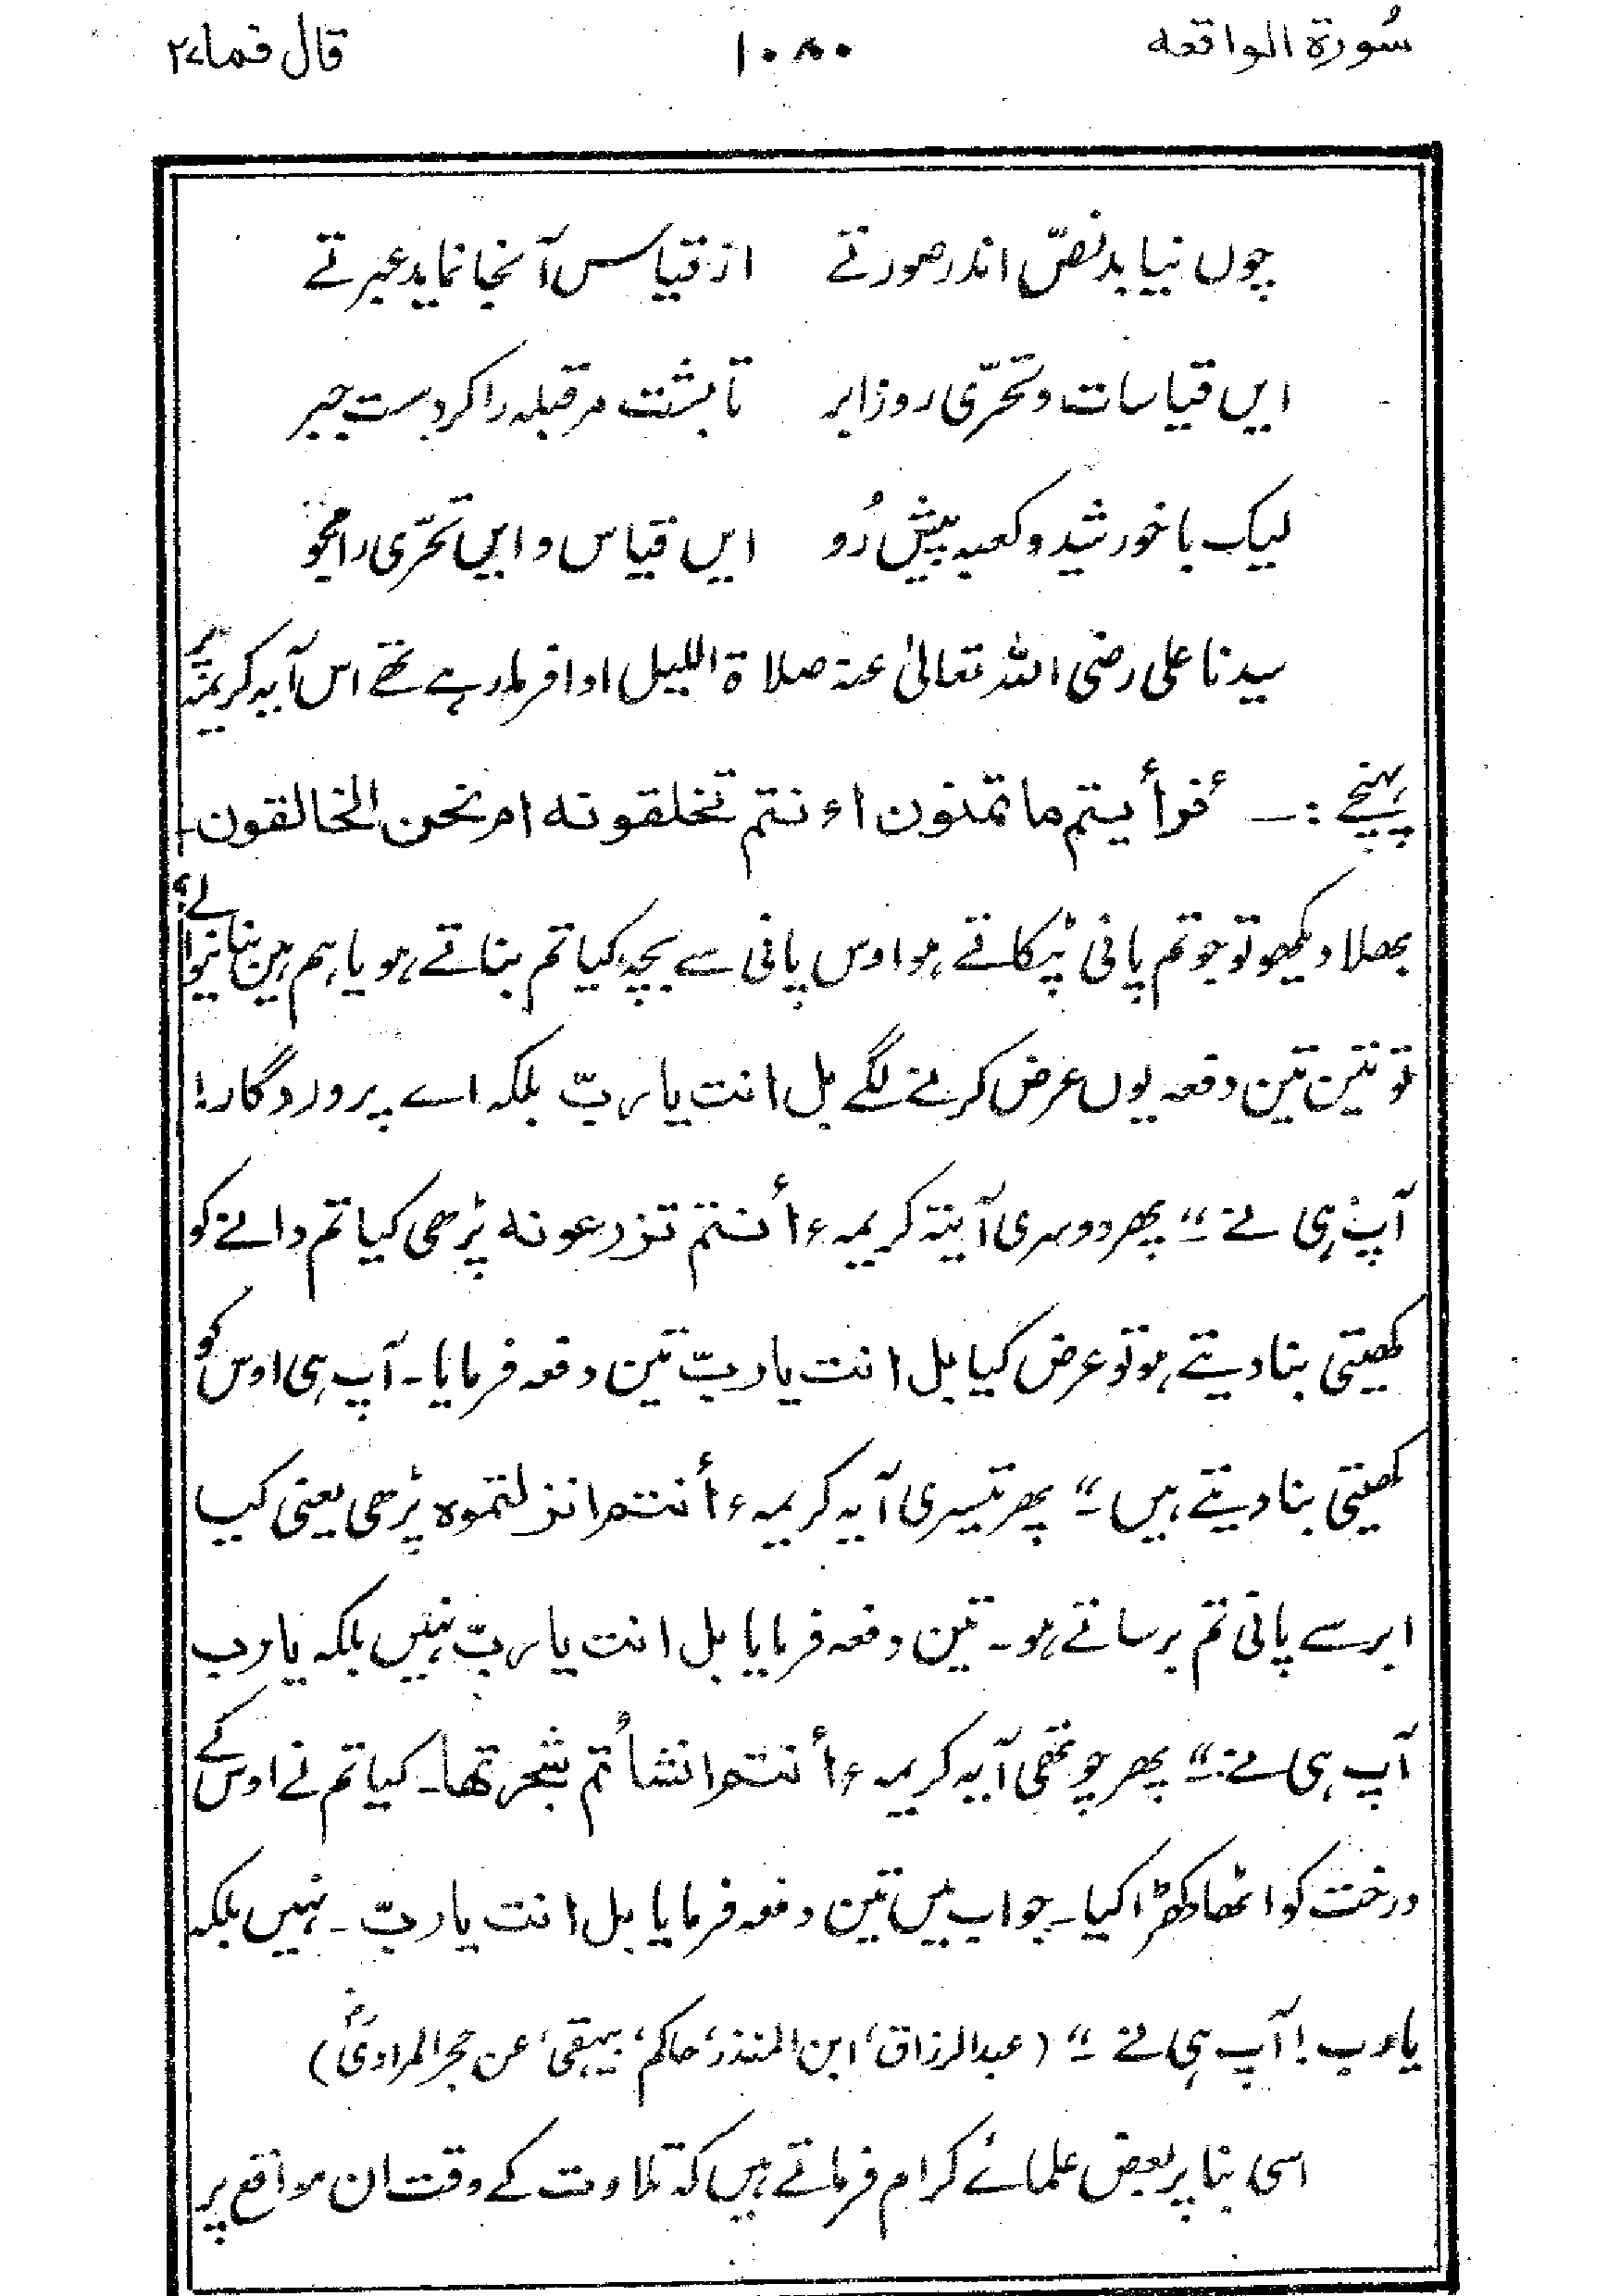 سُورة الواقعه ۱۰۸۰ قال فما ۲۷
چوں نیابد نصّ اندر صورتے از قیاس آنجا نماید عبرتے
ایں قیاسات و تحرّی روز ابر تا بشب مر قبلہ را کردست حبر
لیک با خورشید و کعبہ پیش رُو ایں قیاس و ایں تحرّی را مجو
سیدنا علی رضی اللہ تعالیٰ عنہ صلاۃ اللیل ادا فرما رہے تھے اس آیہ کریمہ پر
پہنچے :— أفرأیتم ما تمنون اءنتم تخلقونه ام نحن الخالقون۔
بھلا دیکھو تو جو تم پانی ٹپکاتے ہو اوس پانی سے بچہ کیا تم بناتے ہو یا ہم ہیں بنانیوالے؟
تو تین تین دفعہ یوں عرض کرنے لگے بل انت یا ربّ بلکہ اے پروردگار!
آپ ہی نے ۔“ پھر دوسری آیتہ کریمہ ءأنتم تزرعونه پڑھی کیا تم دانے کو
کھیتی بنا دیتے ہو تو عرض کیا بل انت یا ربّ تین دفعہ فرمایا۔ آپ ہی اوس کو
کھیتی بنا دیتے ہیں ۔“ پھر تیسری آیہ کریمہ ءأنتم انزلتموه پڑھی یعنی کیا
ابر سے پانی تم برساتے ہو۔ تین دفعہ فرمایا بل انت یا ربّ نہیں بلکہ یا رب
آپ ہی نے ۔“ پھر چوتھی آیہ کریمہ ءأنتم انشأتم شجرتھا۔ کیا تم نے اوس کے
درخت کو اٹھا کھڑا کیا۔ جواب میں تین دفعہ فرمایا بل انت یا ربّ ۔ نہیں بلکہ
یا رب! آپ ہی نے ۔“ (عبدالرزاق، ابن المنذر، حاکم، بیہقی، عن حجر المرادیؓ)
اسی بنا پر بعض علمائے کرام فرماتے ہیں کہ تلاوت کے وقت ان مواقع پر